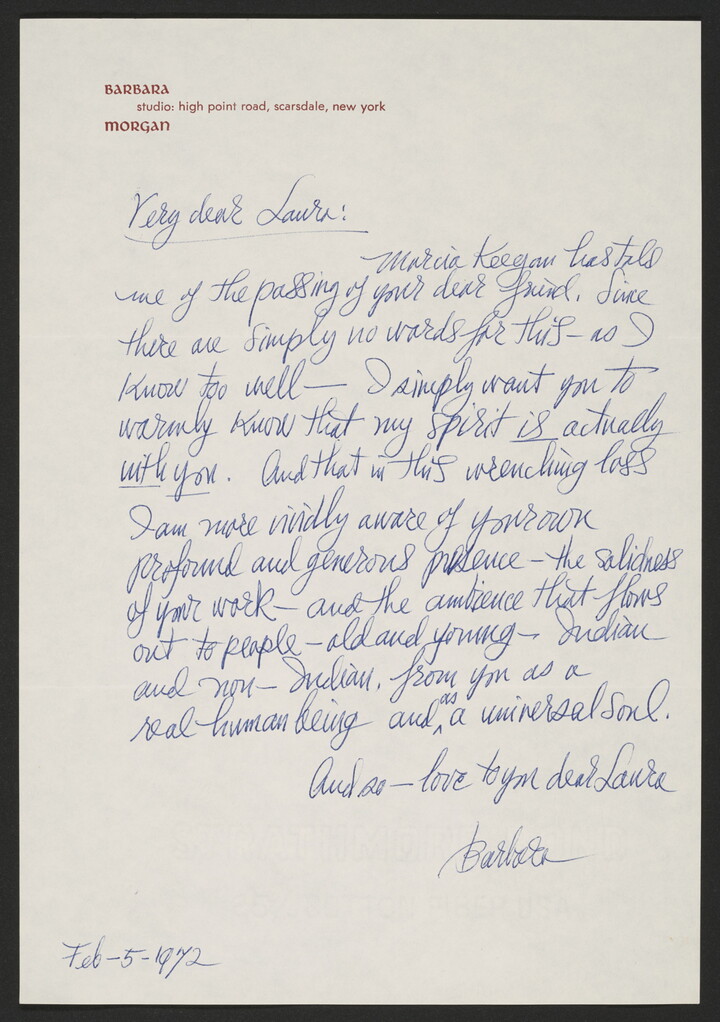 BARBARA
studio: high point road, scarsdale, new york
MORGAN
Very dear Laura:
Marcia Keegan has told
me of the passing of your dear friend. Since
there are simply no words for this – as I
know too well — I simply want you to
warmly know that my spirit is actually
with you. And that in this wrenching loss
I am more vividly aware of your own
profound and generous presence – the solidness
of your work – and the ambience that flows
out to people – old and young – Indian
and non – Indian, from you as a
real human being and as a universal soul.
And so – love to you dear Laura
Barbara
Feb – 5 – 1972